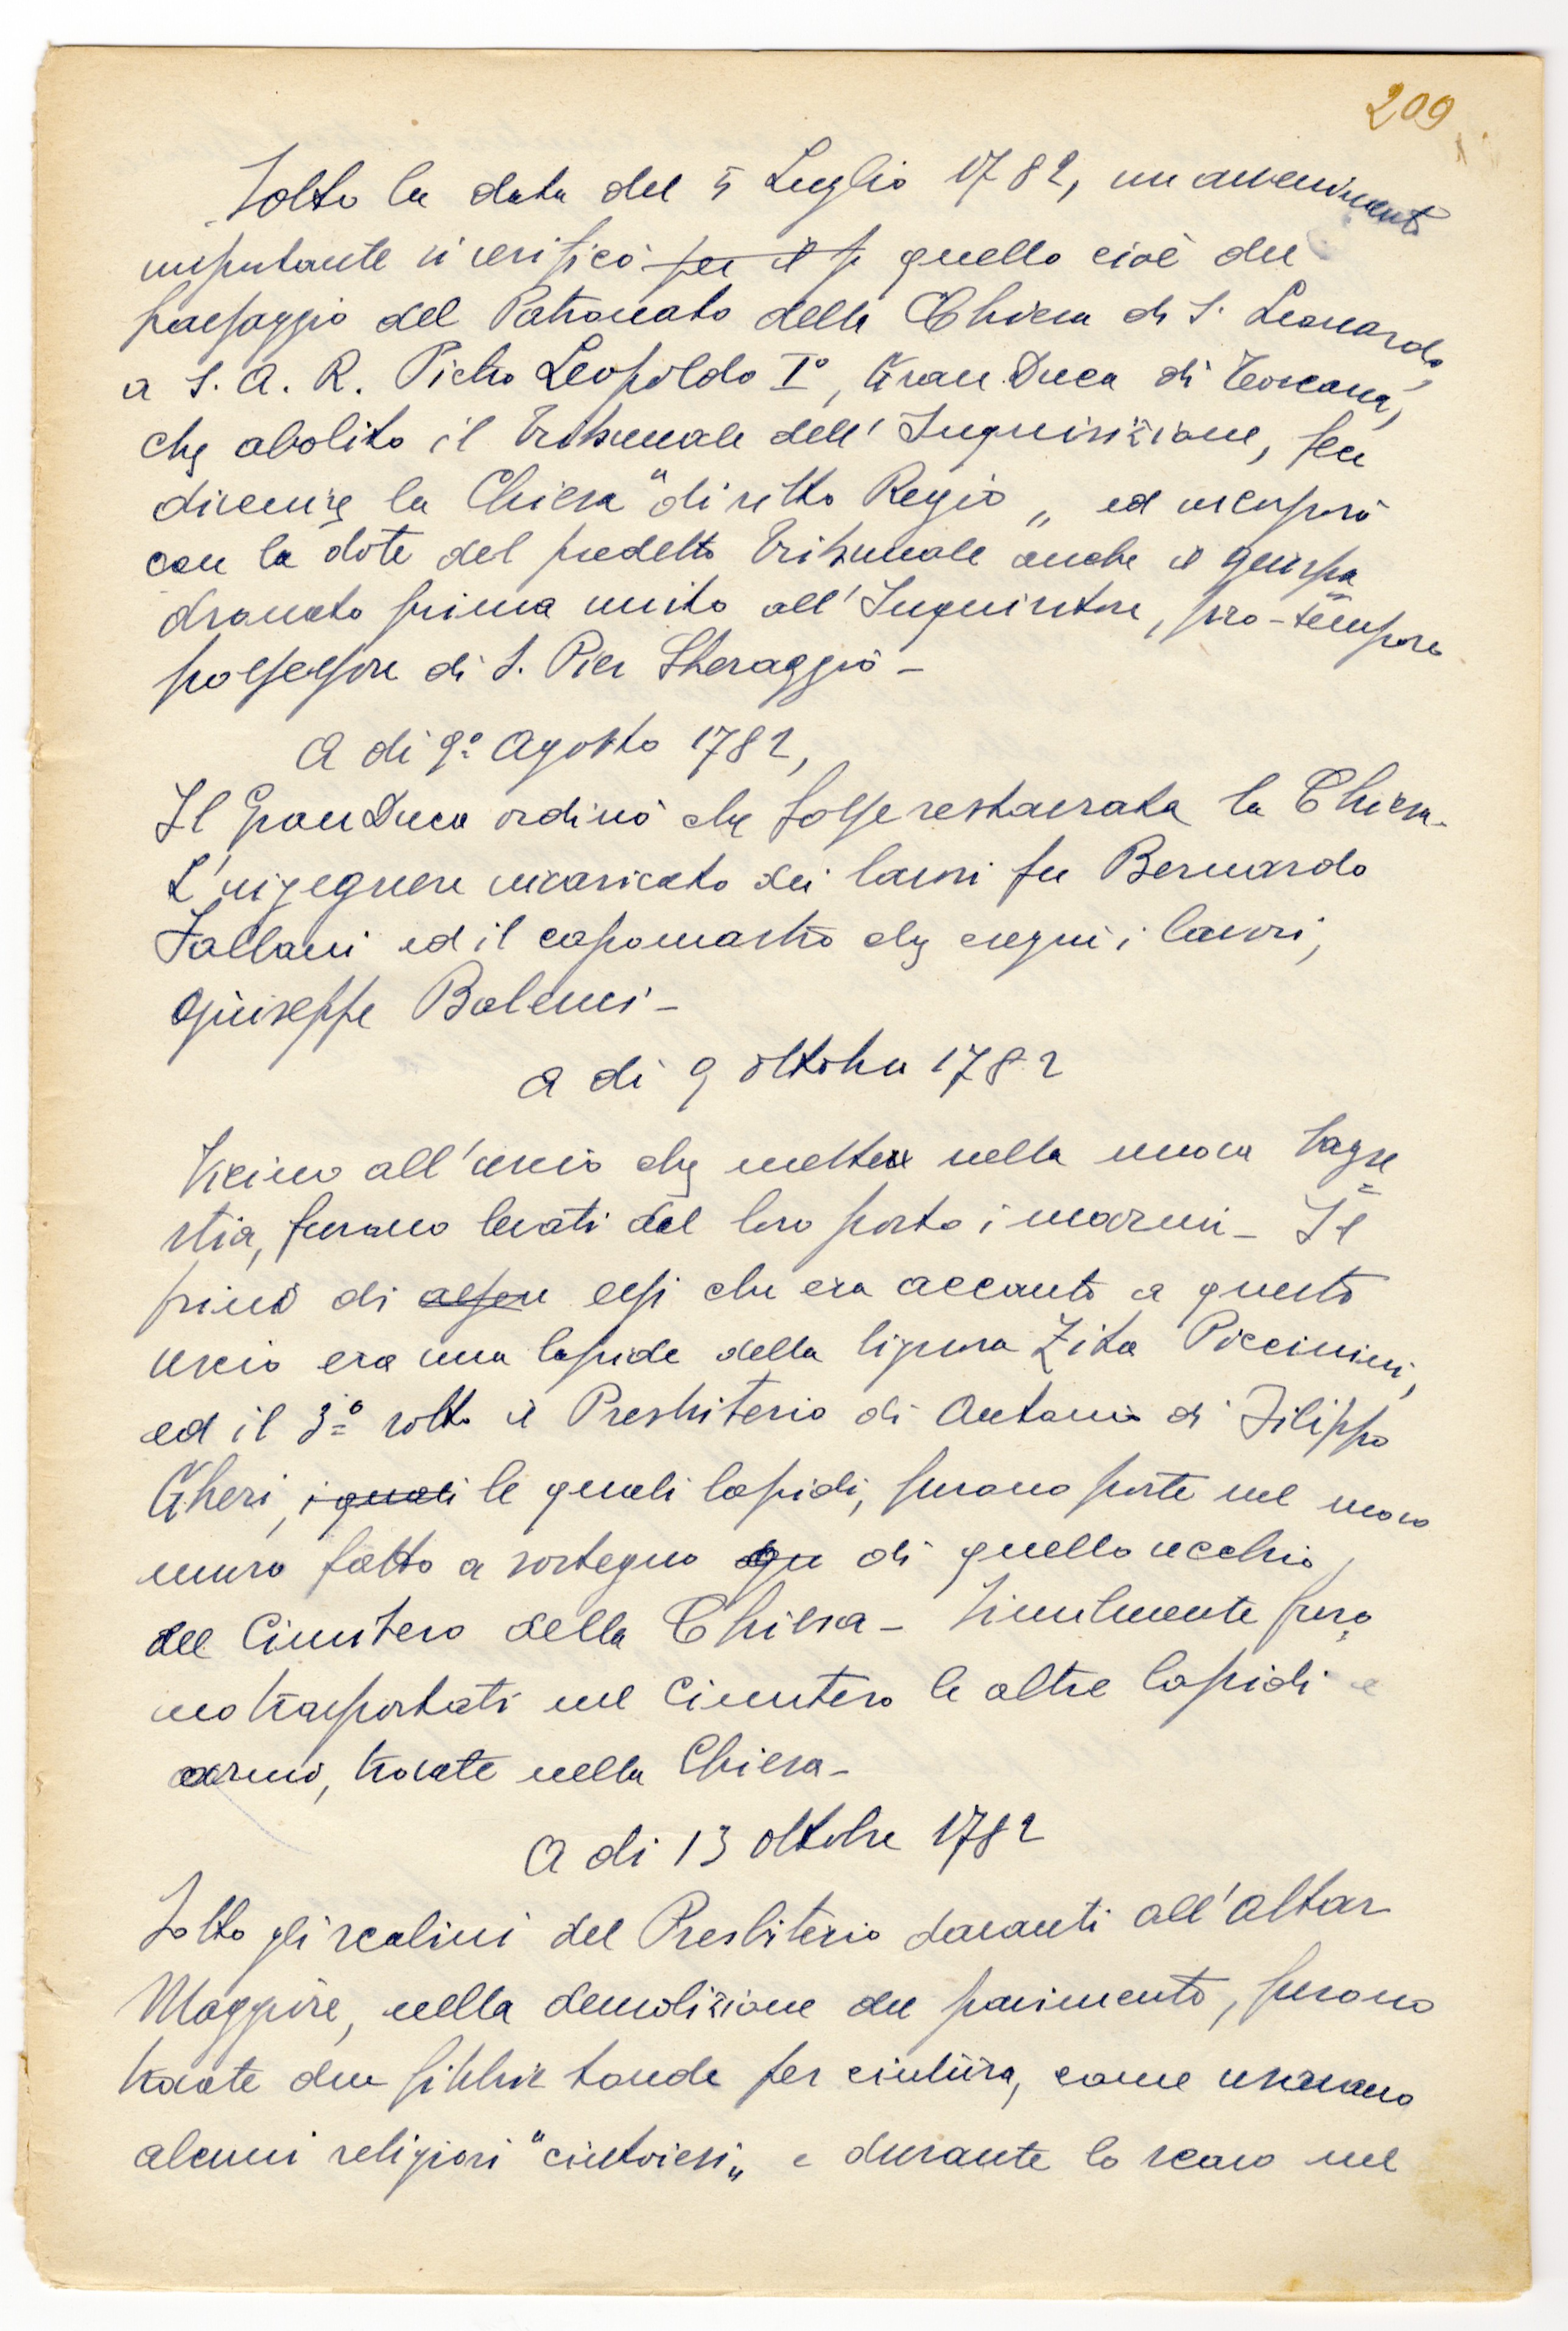 209
Sotto la data del 5 Luglio 1782, un avvenimento
importante si verificò per il p quello cioè del
passaggio del Patronato della Chiesa di S. Leonardo,
a S. A. R. Pietro Leopoldo I°, Gran Duca di Toscana,
che abolito il Tribunale dell'Inquisizione, fece
divenire la Chiesa "di ritto Regio" ed incorporò
con la dote del predetto Tribunale anche il giuspa
dronato prima unito all'Inquisitore, pro-tempore
possessore di S. Pier Scheraggio -
A di 9° Agosto 1782,
Il Gran Duca ordinò che fosse restaurata la Chiesa.
L'ingegnere incaricato dei lavori fu Bernardo
Fallani ed il capomastro che eseguì i lavori,
Giuseppe Balenci -
A di 9 ottobre 1782
Vicino all'uscio che mette nella nuova Sagre=
stia, furono levati dal loro posto i marmi - Il
primo di essi che era accanto a questo
uscio era una lapide della signora Zita Piccinini,
ed il 3° sotto il Presbiterio di Antonio di Filippo
Gheri, i quali le quali lapidi, furono poste nel nuovo
muro fatto a sostegno di quello vecchio,
del Cimitero della Chiesa - Similmente furo
no trasportati nel Cimitero le altre lapidi e
trovate nella Chiesa -
A di 13 ottobre 1782
Sotto gli scalini del Presbiterio davanti all'Altar
Maggiore, nella demolizione del pavimento, furono
trovate due fibbie tonde per cintura, come usavano
alcuni religiosi "cintviesi" e durante lo scavo nel